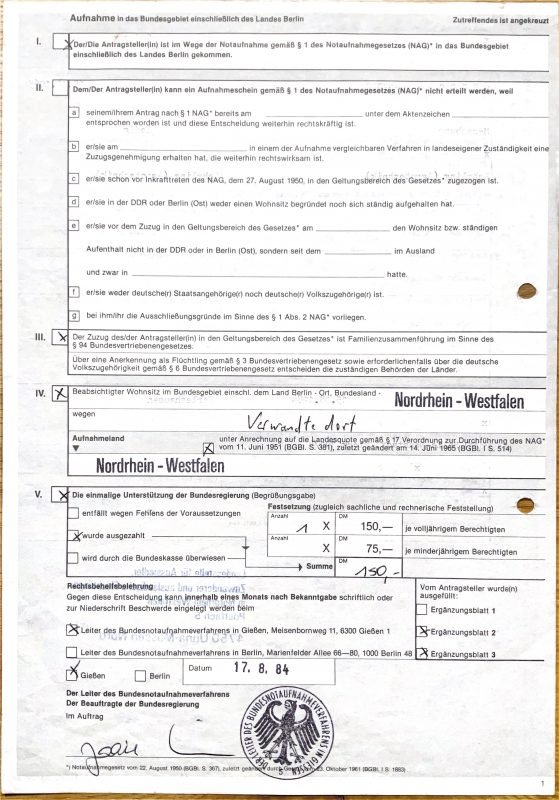 Aufnahme in das Bundesgebiet einschließlich des Landes Berlin
Zutreffendes ist angekreuzt
I. X Der/Die Antragsteller(in) ist im Wege der Notaufnahme gemäß § 1 des Notaufnahmegesetzes (NAG)* in das Bundesgebiet
einschließlich des Landes Berlin gekommen.
II. Dem/Der Antragsteller(in) kann ein Aufnahmeschein gemäß § 1 des Notaufnahmegesetzes (NAG)* nicht erteilt werden, weil
a seinem/ihrem Antrag nach § 1 NAG* bereits am unter dem Aktenzeichen
entsprochen worden ist und diese Entscheidung weiterhin rechtskräftig ist.
b er/sie am in einem der Aufnahme vergleichbaren Verfahren in landeseigener Zuständigkeit eine
Zuzugsgenehmigung erhalten hat, die weiterhin rechtswirksam ist.
c er/sie schon vor Inkrafttreten des NAG, dem 27. August 1950, in den Geltungsbereich des Gesetzes* zugezogen ist.
d er/sie in der DDR oder Berlin (Ost) weder einen Wohnsitz begründet noch sich ständig aufgehalten hat.
e er/sie vor dem Zuzug in den Geltungsbereich des Gesetzes* am den Wohnsitz bzw. ständigen
Aufenthalt nicht in der DDR oder in Berlin (Ost), sondern seit dem im Ausland
und zwar in hatte.
f er/sie weder deutsche(r) Staatsangehörige(r) noch deutsche(r) Volkszugehörige(r) ist.
g bei ihm/ihr die Ausschließungsgründe im Sinne des § 1 Abs. 2 NAG* vorliegen.
III. X Der Zuzug des/der Antragsteller(in) in den Geltungsbereich des Gesetzes* ist Familienzusammenführung im Sinne des
§ 94 Bundesvertriebenengesetzes:
Über eine Anerkennung als Flüchtling gemäß § 3 Bundesvertriebenengesetz sowie erforderlichenfalls über die deutsche
Volkszugehörigkeit gemäß § 6 Bundesvertriebenengesetz entscheiden die zuständigen Behörden der Länder.
IV. X Beabsichtigter Wohnsitz im Bundesgebiet einschl. dem Land Berlin - Ort, Bundesland -
Nordrhein - Westfalen
wegen Verwandte dort
Aufnahmeland
X unter Anrechnung auf die Landesquote gemäß § 17 Verordnung zur Durchführung des NAG*
vom 11. Juni 1951 (BGBl. S. 381), zuletzt geändert am 14. Juni 1965 (BGBl. I S. 514)
Nordrhein - Westfalen
V. X Die einmalige Unterstützung der Bundesregierung (Begrüßungsgabe)
Festsetzung (zugleich sachliche und rechnerische Feststellung)
entfällt wegen Fehlens der Voraussetzungen
Anzahl 1 X DM 150,— je volljährigem Berechtigten
X wurde ausgezahlt
Anzahl X DM 75,— je minderjährigem Berechtigten
wird durch die Bundeskasse überwiesen
Summe DM 150,-
Rechtsbehelfsbelehrung
Gegen diese Entscheidung kann innerhalb eines Monats nach Bekanntgabe schriftlich oder
zur Niederschrift Beschwerde eingelegt werden beim
Vom Antragsteller wurde(n)
ausgefüllt:
Ergänzungsblatt 1
X Leiter des Bundesnotaufnahmeverfahrens in Gießen, Meisenbornweg 11, 6300 Gießen 1
X Ergänzungsblatt 2
Leiter des Bundesnotaufnahmeverfahrens in Berlin, Marienfelder Allee 66—80, 1000 Berlin 48
X Ergänzungsblatt 3
X Gießen Berlin Datum 17. 8. 84
Der Leiter des Bundesnotaufnahmeverfahrens
Der Beauftragte der Bundesregierung
Im Auftrag
DER LEITER DES BUNDESNOTAUFNAHMEVERFAHRENS IN GIESSEN
*) Notaufnahmegesetz vom 22. August 1950 (BGBl. S. 367), zuletzt geändert durch 23. Oktober 1961 (BGBl. I S. 1883)
1